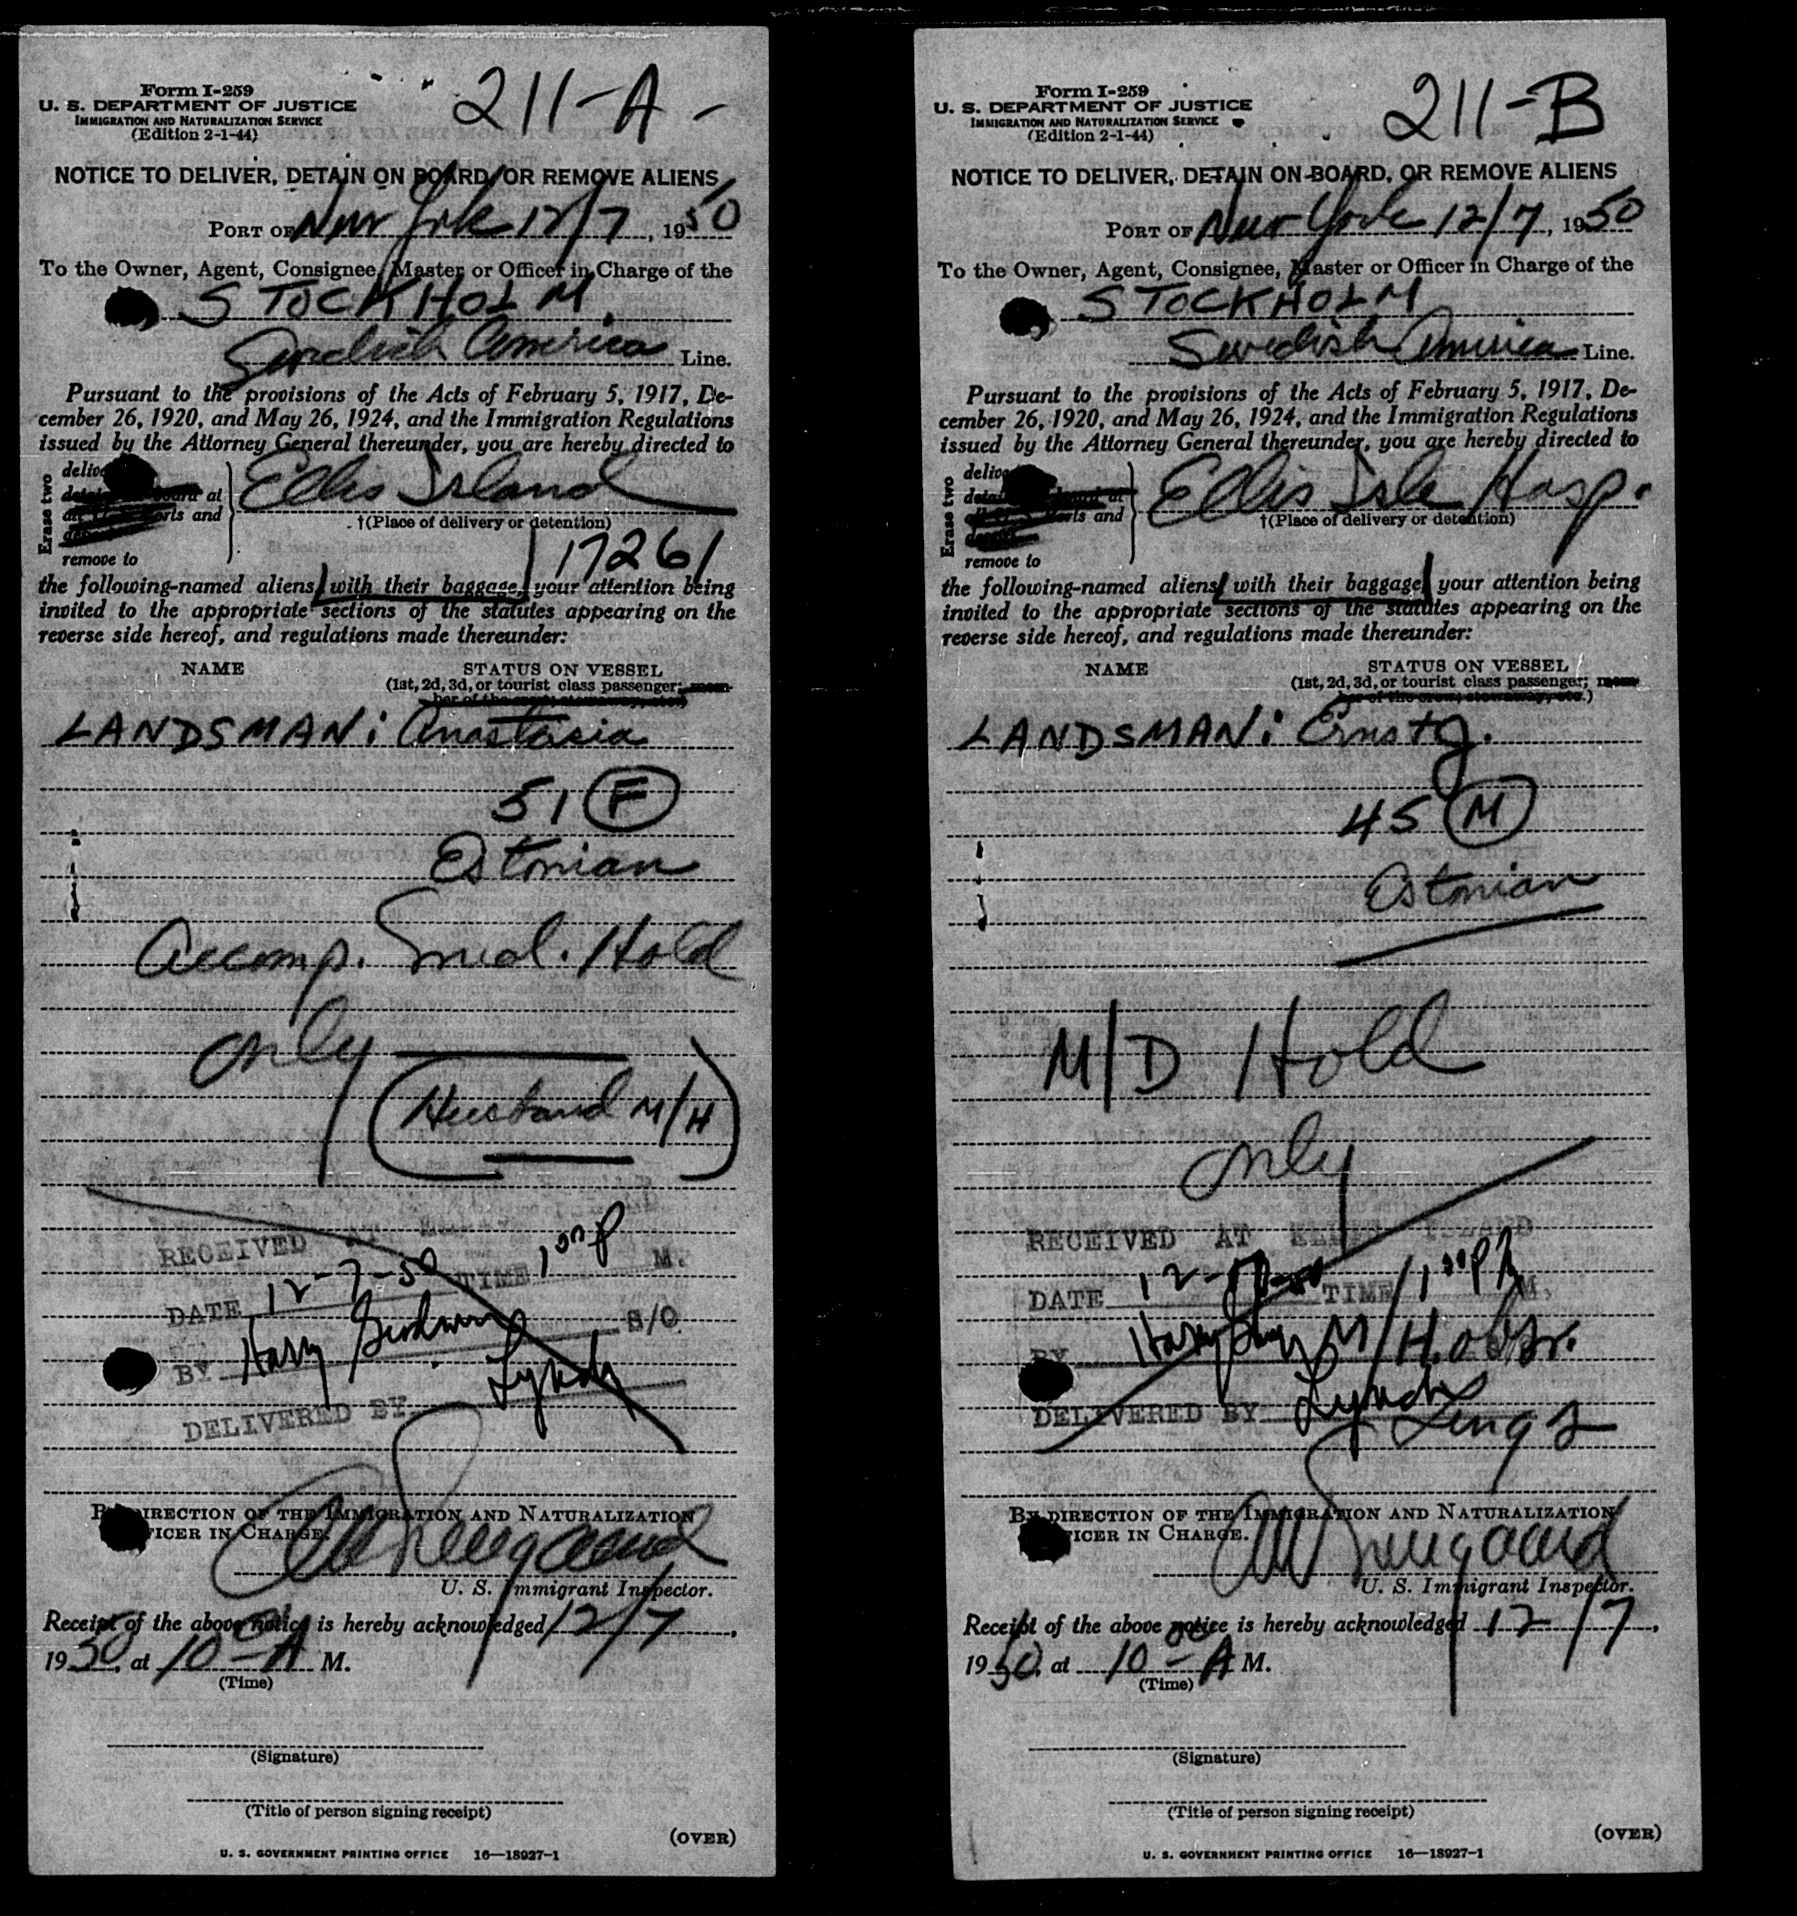 Form I-259
U. S. DEPARTMENT OF JUSTICE
IMMIGRATION AND NATURALIZATION SERVICE
(Edition 2-1-44)
211-A-
NOTICE TO DELIVER, DETAIN ON BOARD, OR REMOVE ALIENS
PORT OF New York 12/7, 1950
To the Owner, Agent, Consignee, Master or Officer in Charge of the
STOCKHOLM.
Swedish America Line.
Pursuant to the provisions of the Acts of February 5, 1917, De-
cember 26, 1920, and May 26, 1924, and the Immigration Regulations
issued by the Attorney General thereunder, you are hereby directed to
Erase two
deliver
at
and
remove to
Ellis Island
†(Place of delivery or detention)
17261
the following-named aliens with their baggage, your attention being
invited to the appropriate sections of the statutes appearing on the
reverse side hereof, and regulations made thereunder:
NAME STATUS ON VESSEL
(1st, 2d, 3d, or tourist class passenger; mem-
ber of the crew; stowaway, etc.)
LANDSMAN: Anastasia
51 F
Estonian
Accomp. Hold
only
(Husband M/H)
RECEIVED AT
DATE 12-7-50 TIME 1 00 P M.
BY Harry S/O
DELIVERED BY Lynch
BY DIRECTION OF THE IMMIGRATION AND NATURALIZATION
OFFICER IN CHARGE.
U. S. Immigrant Inspector.
Receipt of the above notice is hereby acknowledged 12/7,
1950, at 10 A M.
(Time)
(Signature)
(Title of person signing receipt)
(OVER)
U. S. GOVERNMENT PRINTING OFFICE 16—18927-1
Form I-259
U. S. DEPARTMENT OF JUSTICE
IMMIGRATION AND NATURALIZATION SERVICE
(Edition 2-1-44)
211-B
NOTICE TO DELIVER, DETAIN ON BOARD, OR REMOVE ALIENS
PORT OF New York 12/7, 1950
To the Owner, Agent, Consignee, Master or Officer in Charge of the
STOCKHOLM
Swedish America Line.
Pursuant to the provisions of the Acts of February 5, 1917, De-
cember 26, 1920, and May 26, 1924, and the Immigration Regulations
issued by the Attorney General thereunder, you are hereby directed to
Erase two
deliver
at
and
remove to
Ellis Isle Hosp.
†(Place of delivery or detention)
the following-named aliens with their baggage, your attention being
invited to the appropriate sections of the statutes appearing on the
reverse side hereof, and regulations made thereunder:
NAME STATUS ON VESSEL
(1st, 2d, 3d, or tourist class passenger; mem-
ber of the crew, stowaway, etc.)
LANDSMAN: Ernst J.
45 M
Estonian
M/D Hold
only
RECEIVED AT ELLIS ISLAND
DATE 12-7-50 TIME 1 00 P M.
BY Harry
DELIVERED BY Lynch
BY DIRECTION OF THE IMMIGRATION AND NATURALIZATION
OFFICER IN CHARGE.
U. S. Immigrant Inspector.
Receipt of the above notice is hereby acknowledged 12/7,
1950, at 10 00 A M.
(Time)
(Signature)
(Title of person signing receipt)
(OVER)
U. S. GOVERNMENT PRINTING OFFICE 16—18927-1